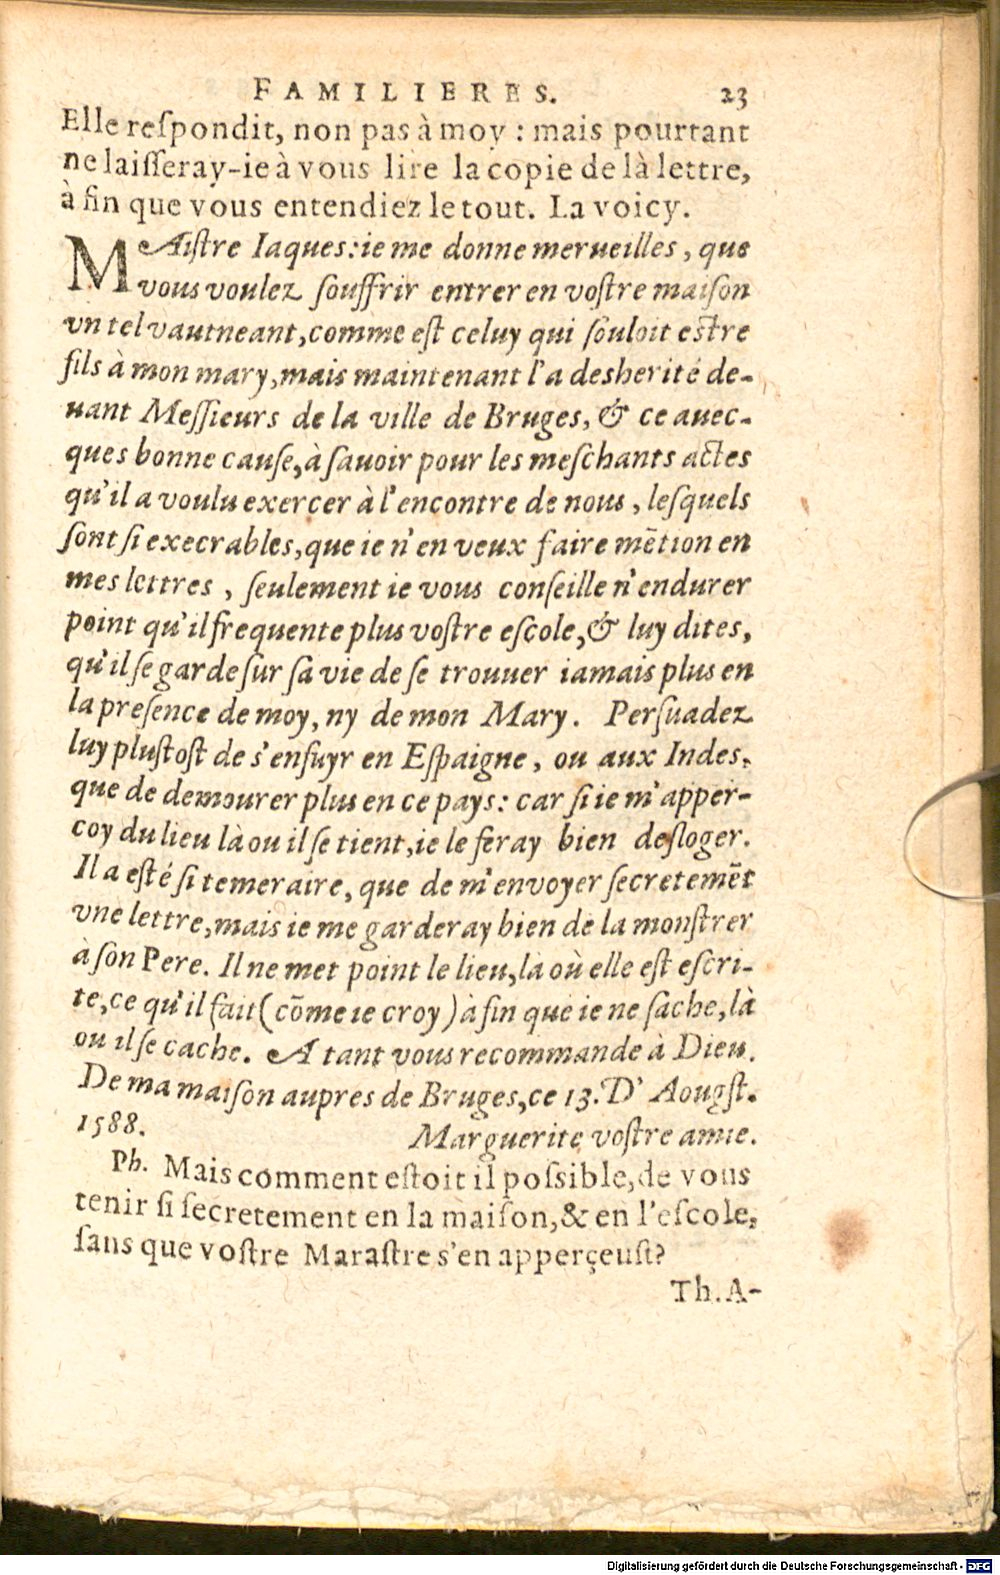 FAMILIERES. 23
Elle reſpondit, non pas à moy : mais pourtant
ne laiſſeray-ie à vous lire la copie de là lettre,
à fin que vous entendiez le tout. La voicy.
MAiſtre Iaques: ie me donne merueilles, que
vous voulez ſouffrir entrer en voſtre maiſon
vn tel vautneant, comme eſt celuy qui ſouloit eſtre
fils à mon mary, mais maintenant l'a desherité de-
uant Meſſieurs de la ville de Bruges, & ce auec-
ques bonne cauſe, à ſauoir pour les meſchants actes
qu'il a voulu exercer à l'encontre de nous, leſquels
ſont ſi execrables, que ie n'en veux faire mētion en
mes lettres, ſeulement ie vous conſeille n'endurer
point qu'il frequente plus voſtre eſcole, & luy dites,
qu'il ſe garde ſur ſa vie de ſe trouuer iamais plus en
la preſence de moy, ny de mon Mary. Perſuadez
luy pluſtoſt de s'enfuyr en Eſpaigne, ou aux Indes,
que de demourer plus en ce pays: car ſi ie m'apper-
coy du lieu là ou il ſe tient, ie le feray bien deſloger.
Il a eſté ſi temeraire, que de m'envoyer ſecretemēt
vne lettre, mais ie me garderay bien de la monſtrer
à ſon Pere. Il ne met point le lieu, là où elle eſt eſcri-
te, ce qu'il fait (cōme ie croy) à fin que ie ne ſache, là
ou il ſe cache. A tant vous recommande à Dieu.
De ma maiſon aupres de Bruges, ce 13. D'Aougſt.
1588. Marguerite voſtre amie.
Ph. Mais comment eſtoit il poſsible, de vous
tenir ſi ſecretement en la maiſon, & en l'eſcole,
ſans que voſtre Maraſtre s'en apperçeuſt?
Th. A-
Digitalisierung gefördert durch die Deutsche Forschungsgemeinschaft - DFG